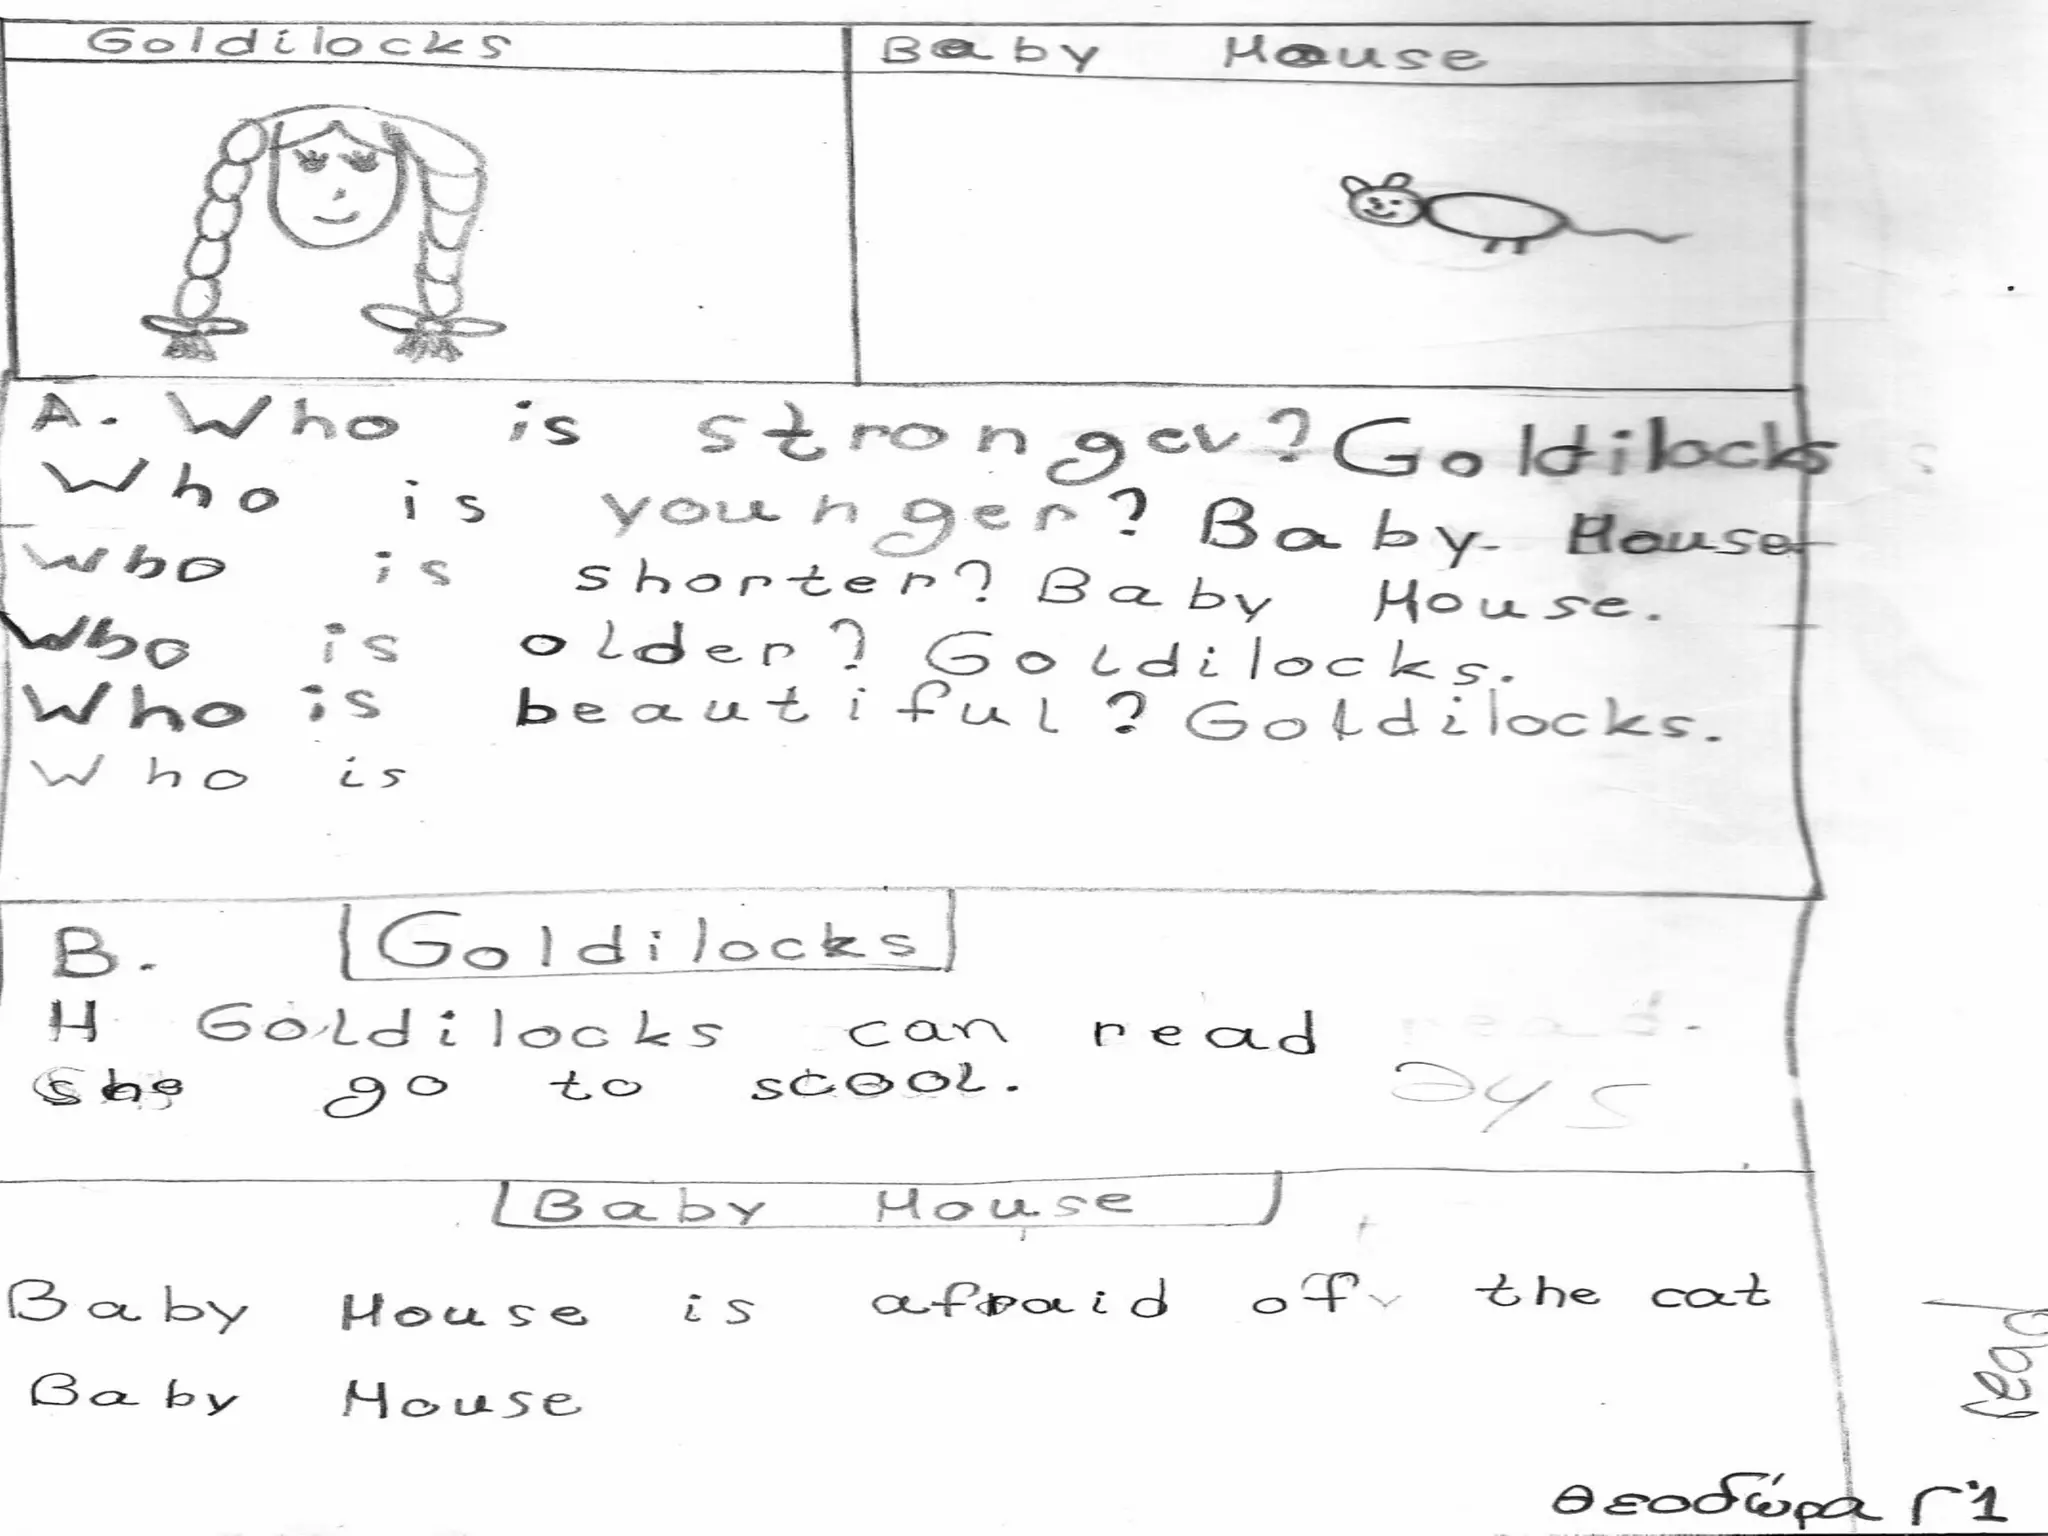 Goldilocks
Baby Mouse
A. Who is stronger? Goldilocks
Who is younger? Baby Mouse
Who is shorter? Baby Mouse.
Who is older? Goldilocks.
Who is beautiful? Goldilocks.
Who is
B. Goldilocks
H Goldilocks can read
She go to scool.
Baby Mouse
Baby Mouse is afraid of the cat
Baby Mouse
Θεοδώρα Γ'1